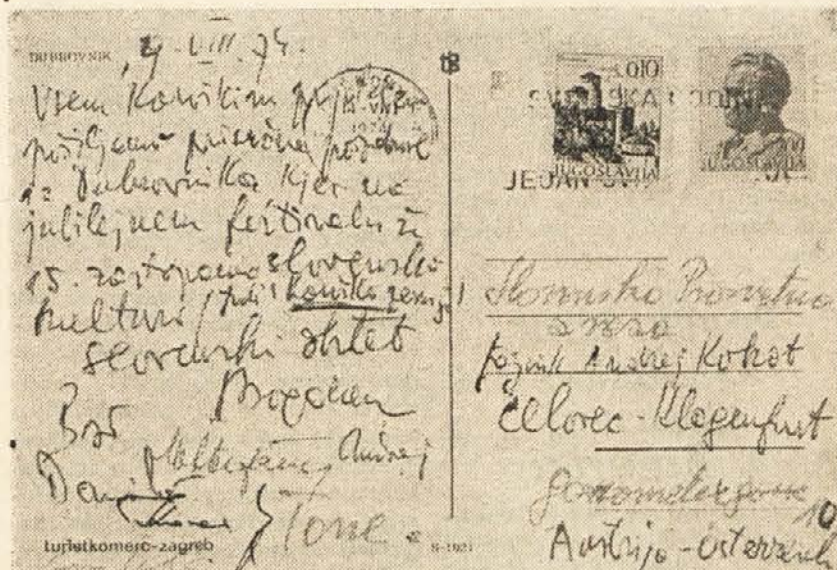 DUBROVNIK, 9. VIII. 74.
Vsem koroškim
pošiljamo prisrčne pozdrave
iz Dubrovnika kjer na
jubilejnem festivalu že
15. zastopamo slovensko
kulturo (tudi koroško pesmijo)
slovenski oktet
Bogdan
Božo
Andrej
Danilo
Tone
turistkomerc-zagreb
0.10
JUGOSLAVIJA
JUGOSLAVIJA
JEDAN
Slovenska Prosvetna
zveza
pesnik Andrej Kokot
Celovec - Klagenfurt
10
Avstrija - Österreich